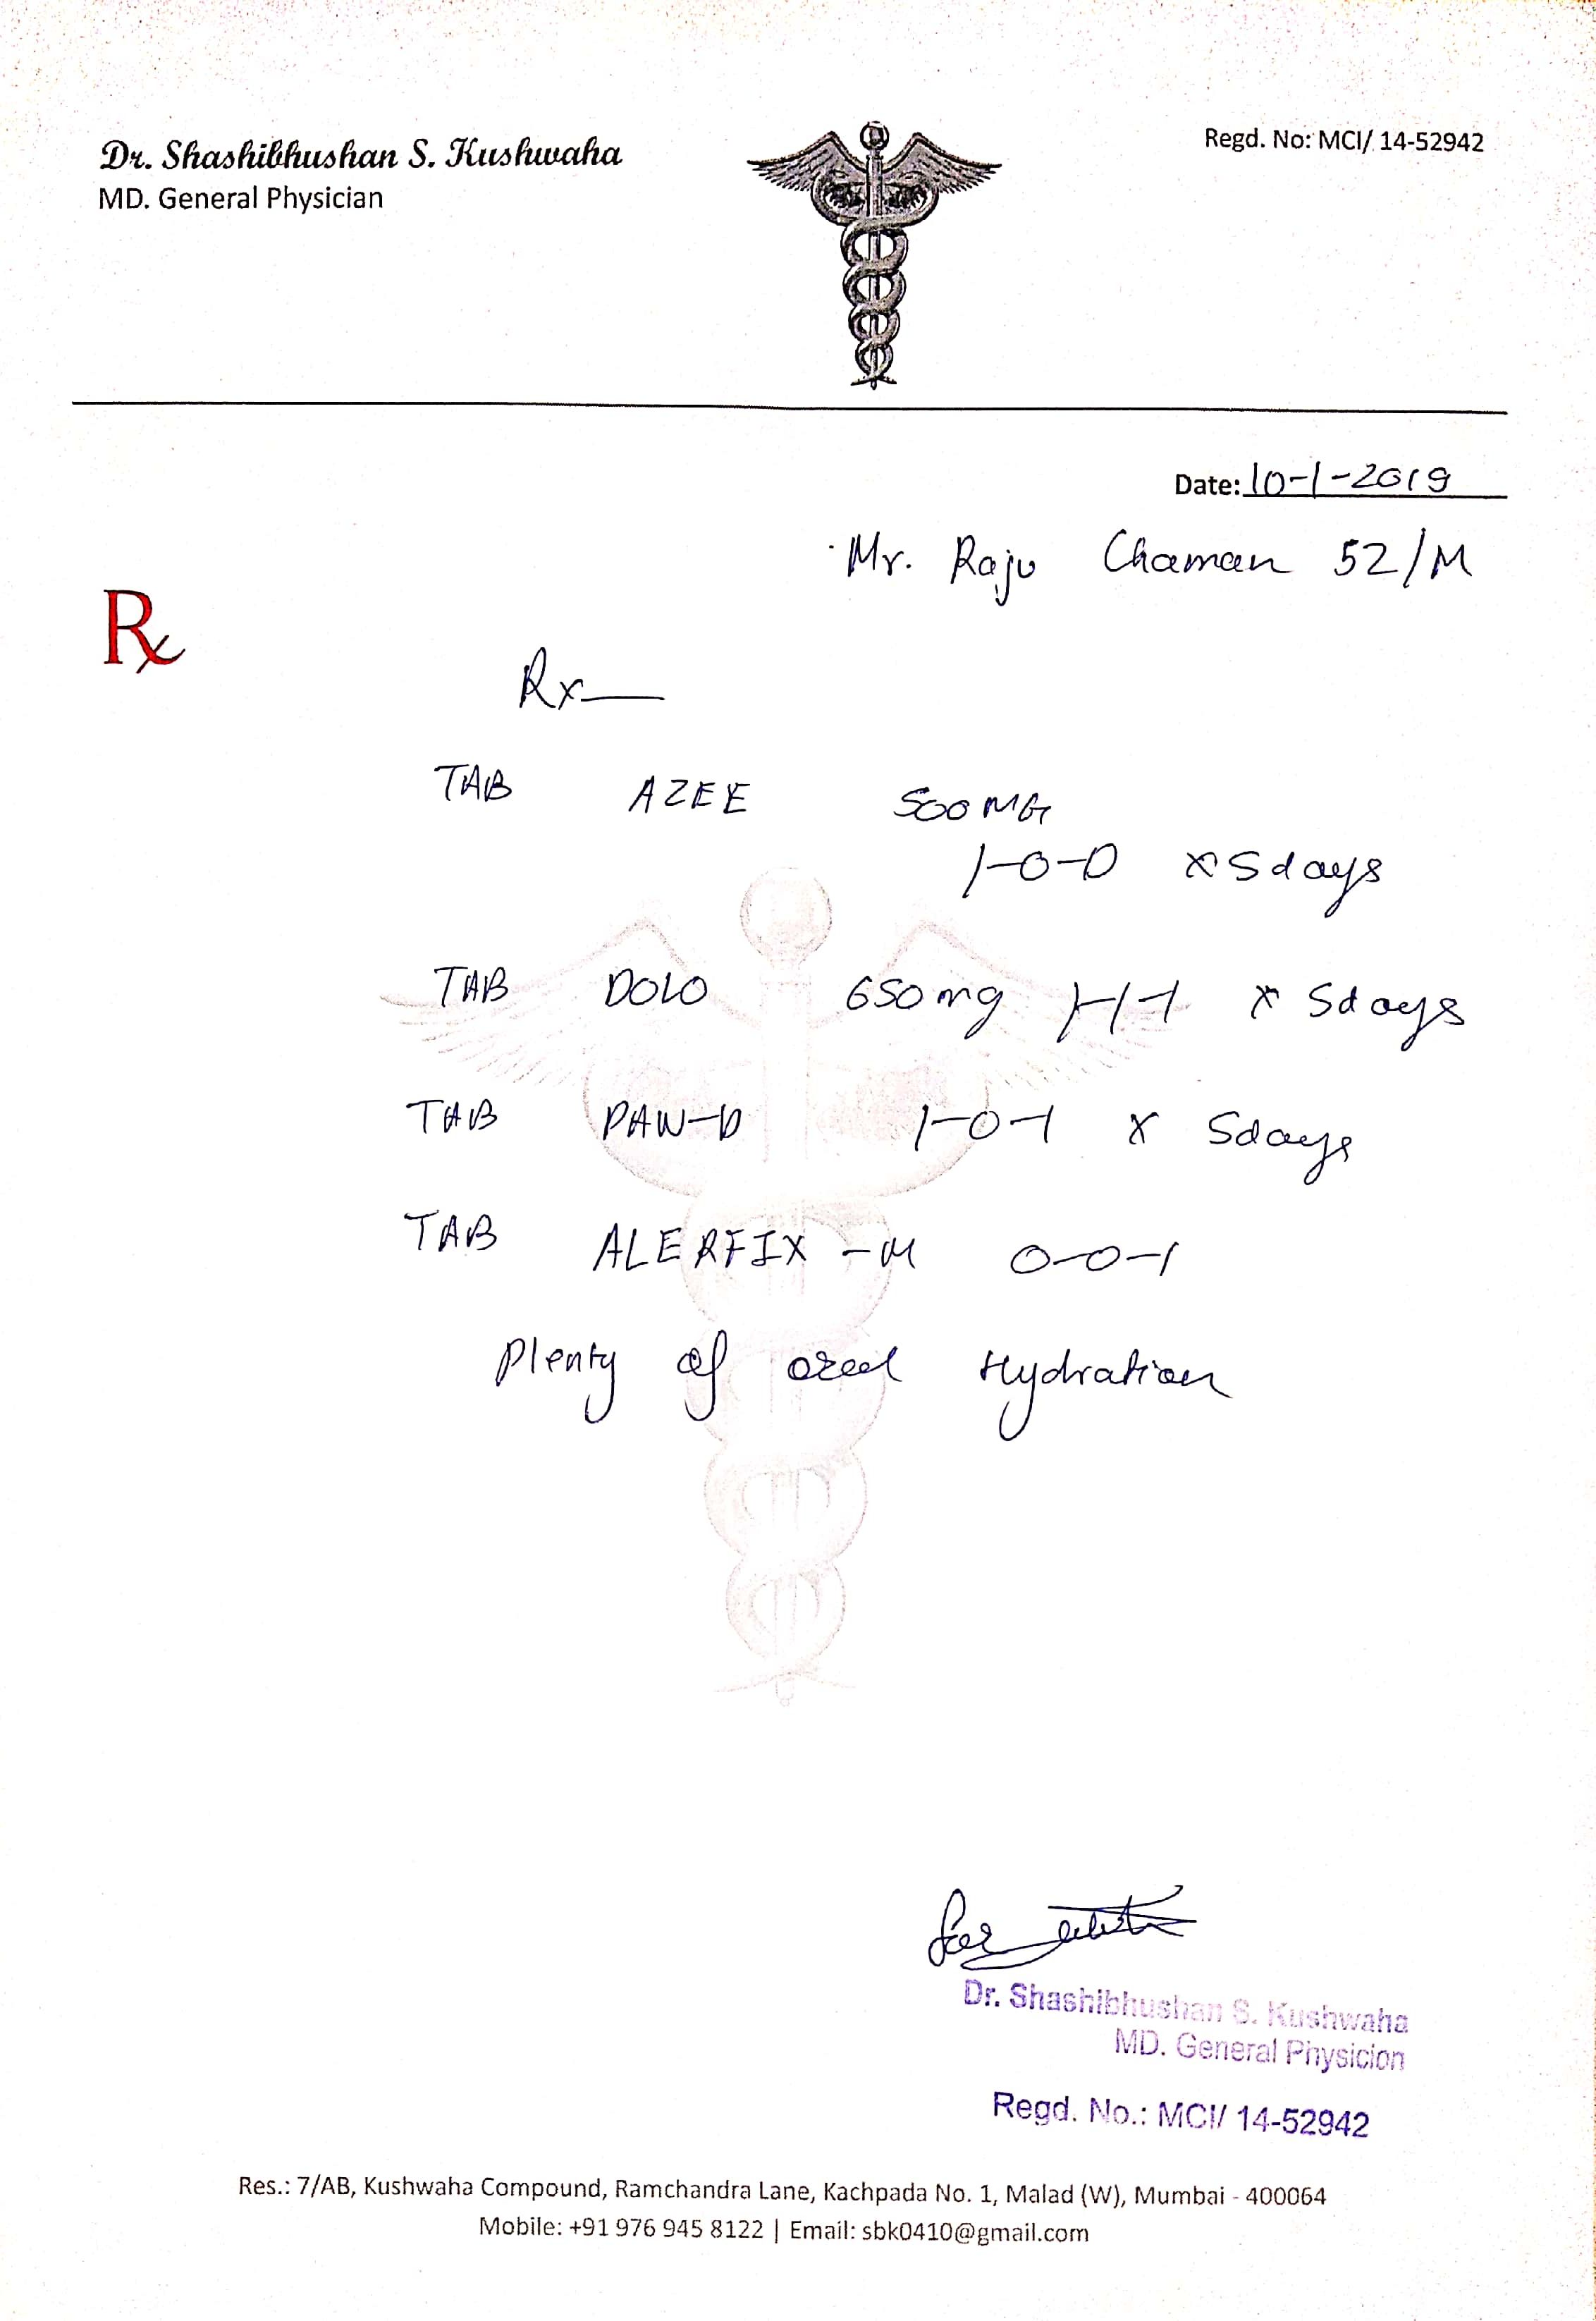 Dr. Shashibhushan S. Kushwaha
MD. General Physician
Regd. No: MCI/ 14-52942
Date: 10-1-2019
Mr. Raju Chaman 52/M
Rx
Rx
TAB AZEE 500 MG
1-0-0 x 5days
TAB DOLO 650mg 1-1-1 x 5days
TAB PAN-D 1-0-1 x 5days
TAB ALERFIX -M 0-0-1
Plenty of oral Hydration
Dr. Shashibhushan S. Kushwaha
MD. General Physicion
Regd. No.: MCI/ 14-52942
Res.: 7/AB, Kushwaha Compound, Ramchandra Lane, Kachpada No. 1, Malad (W), Mumbai - 400064
Mobile: +91 976 945 8122 | Email: sbk0410@gmail.com